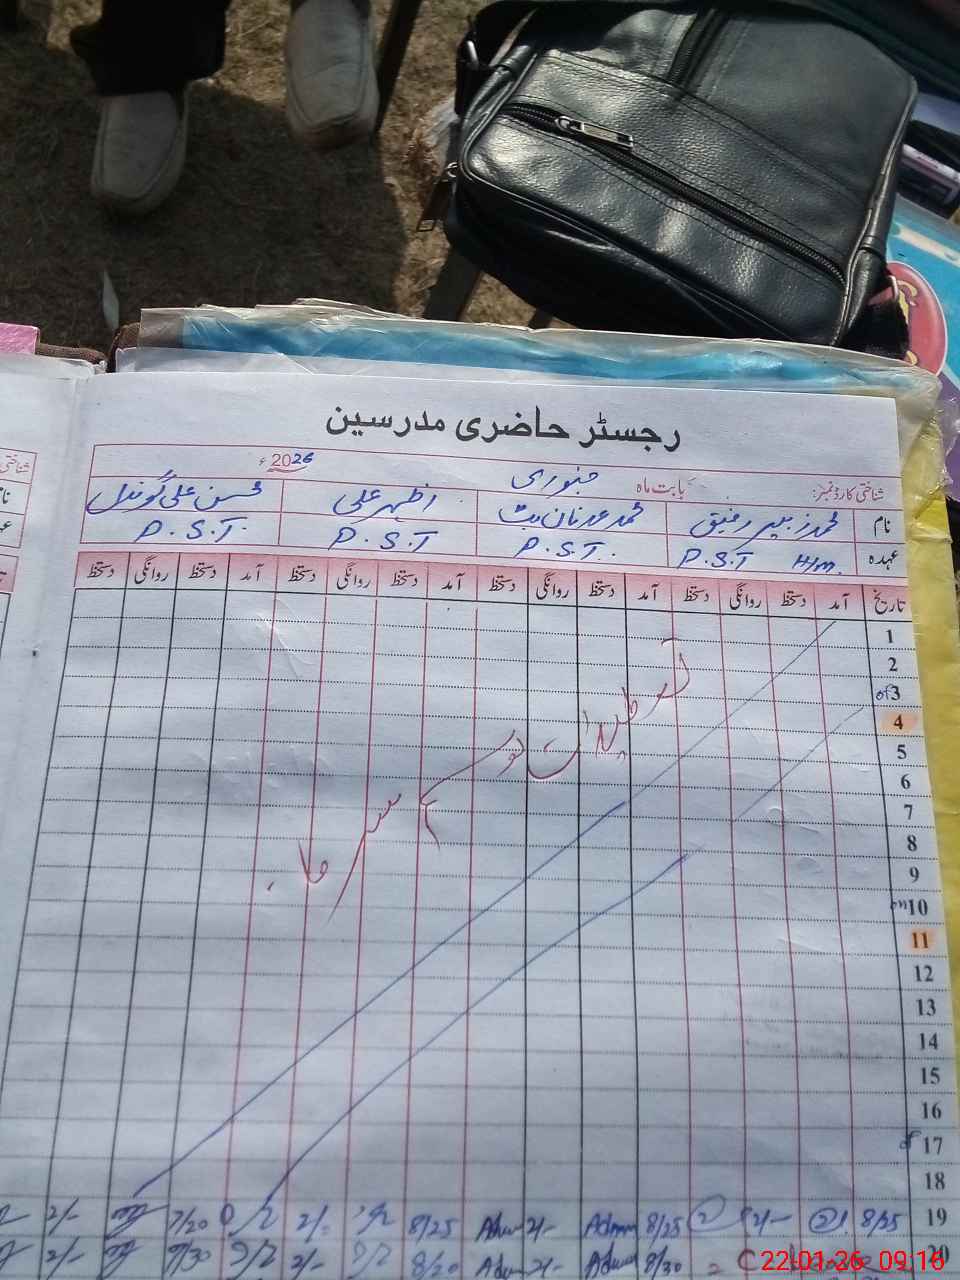 رجسٹر حاضری مدرسین
شناختی کارڈ نمبر: بابت ماہ جنوری 2026ء
نام محمد زبیر رفیق محمد عدنان بٹ اظہر علی محسن علی گوندل
عہدہ P.S.T H/m. P.S.T. P.S.T P.S.T.
تاریخ آمد دستخط روانگی دستخط آمد دستخط روانگی دستخط آمد دستخط روانگی دستخط آمد دستخط روانگی دستخط
1
2
3
4
5
6
7
8
9
10
11
12
13
14
15
16
17
18
19 8/25 2/- 8/25 2/- 8/25 2/- 7/20 2/-
20 8/30 2/- 8/20 2/- 7/30 2/-
تعطیلات موسم سرما
22-01-26 09:16